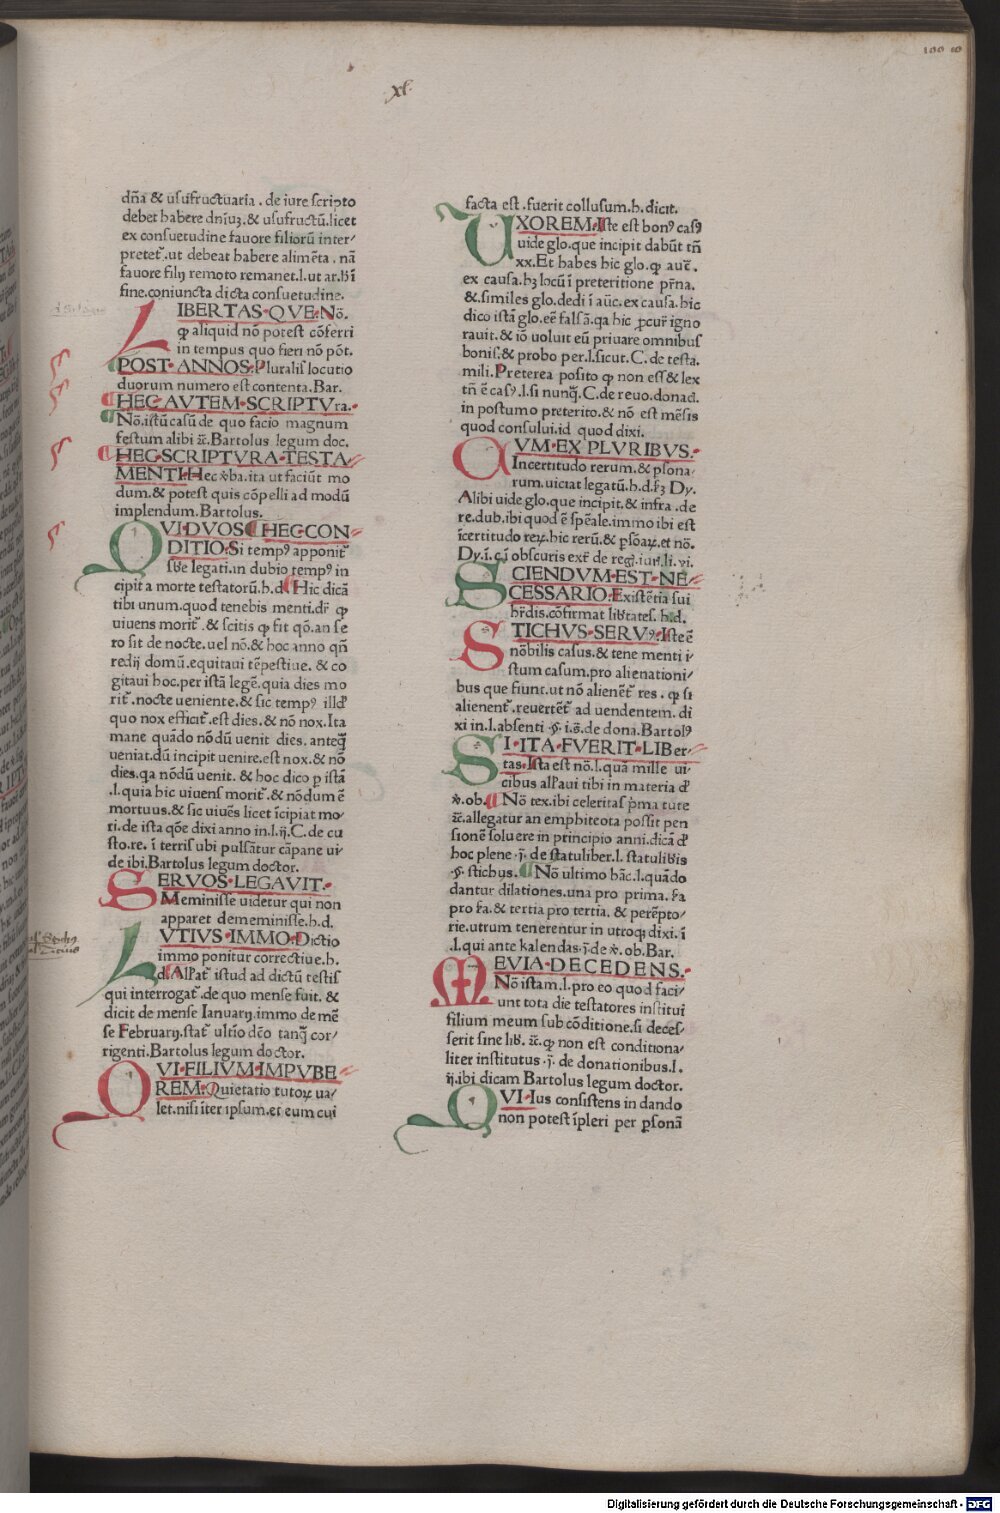 .xl.
dña & usufructuaria . de iure scripto
debet habere dniuꝫ. & usufructū.licet
ex consuetudine fauore filiorū inter/
pretet᷑.ut debeat habere alimēta . nā
fauore filij remoto remanet.l.ut ar.
fine.coniuncta dicta consuetudine.
LIBERTAS•QVE•Nō.
ꝙ aliquid nō potest cōferri
in tempus quo fieri nō pōt.
POST•ANNOS•Pluralis locutio
duorum numero est contenta.Bar.
HEC•AVTEM•SCRIPTVra.•
Nō.istū casū de quo facio magnum
festum alibi &c̄.Bartolus legum doc.
HEC•SCRIPTVRA•TESTA/
MENTI•Hec v̄ba.ita ut faciūt mo
dum.& potest quis cōpelli ad modū
implendum.Bartolus.
QVI•DVOS HEC•CON-
DITIO•Si tempꝰ apponit᷑
legati.in dubio tempꝰ in
cipit a morte testatorū.h.d. Hic dicā
tibi unum.quod tenebis menti.dr̄ ꝙ
uiuens morit᷑ .& scitis ꝙ fit qō.an se
ro sit de nocte.uel nō.& hoc anno qñ
redij domū.equitaui tēpestiue. & co
gitaui hoc.per istā legē.quia dies mo
rit᷑ .nocte ueniente.& sic tempꝰ illd̓
quo nox efficit᷑.est dies.& nō nox.Ita
mane quādo nōdū uenit dies. anteq̄ꝫ
ueniat.dū incipit uenire.est nox.& nō
dies.qa nōdū uenit. & hoc dico ꝑ istā
.l.quia hic uiuens morit᷑.& nōdum ē
mortuus.& sic uiuēs licet īcipiat mo/
ri.de ista qōe dixi anno in.l.ij.C.de cu
sto.re. ī terris ubi pulsātur cāpane ui/
de ibi.Bartolus legum doctor.
SERVOS•LEGAVIT.•
Meminisse uidetur qui non
apparet dememinisse.h.d.
LVTIVS•IMMO•Dictio
immo ponitur correctiue.h.
d. istud ad dictū testis
qui interrogat᷑ .de quo mense fuit. &
dicit de mense Ianuarij.immo de mē
se Februarij.stat᷑ ultīo dc̄o tanq̄ꝫ cor/
rigenti.Bartolus legum doctor.
QVI•FILIVM•IMPVBE
REM•Quietatio tutoꝝ ua/
let.nisi īter ipsum.et eum cui
facta est .fuerit collusum.h.dicit.
VXOREM•Iste est bonꝰ casꝰ
uide glo.que incipit dabūt tñ
xx.Et habes hic glo.ꝙ auc̄ .
ex causa.hꝫ locū ī preteritione pr̄na.
&.similes glo.dedi ī aūc.ex causa.hic
dico istā glo.eē falsā.qa hic ꝓcur᷑ igno
rauit.& iō uoluit eū priuare omnibus
bonis.& probo per.l.sicut. C.de testa.
mili.Preterea posito ꝙ non ess& lex
tñ ē casꝰ.l.si nunq̄ꝫ.C.de reuo.donać.
in postumo preterito.& nō est mēsis
quod consului.id quod dixi.
CVM•EX•PLVRIBVS.•
Incertitudo rerum.& ꝑsona/
rum.uiciat legatū.h.d. Dy.
Alibi uide glo.que incipit.& infra .de
re.dub.ibi quod ē spēale.immo ibi est
īcertitudo reꝝ.hic rerū.& ꝑsōaꝝ.et nō.
Dy.ī.c.ī obscuris ext᷑ de regl̄.iur̄.li.vi.
SCIENDVM•EST•NE-
CESSARIO•Existētia sui
hr̄dis.cōfirmat lib̄tates. h.d.
STICHVS•SERVꝰ•Iste ē
nōbilis casus.& tene menti i/
stum casum.pro alienationi/
bus que fiunt.ut nō alienēt᷑ res . ꝙ si
alienent᷑.reuertēt᷑ ad uendentem. di
xi in.l.absenti .§. i.s̄.de dona.Bartolꝰ
SI•ITA•FVERIT•LIBer-
tas•Ista est nō.l.quā mille ui/
cibus allegaui tibi in materia d̓
v̄.ob. Nō tex.ibi celeritas p̄ma tute
&c̄.allegatur an emphiteota possit pen
sionē soluere in principio anni.dicā d̓
hoc plene .j̄. de statuliber.l. statulib̄is
.§. stichus. Nō ultimo hāc.l.quādo
dantur dilationes.una pro prima.
pro &. tertia pro tertia. & perēpto/
rie.utrum tenerentur in utroqꝫ dixi. ī
.l.qui ante kalendas.j̄.de v̄.ob.Bar.
MEVIA•DECEDENS.•
Nō istam.l.pro eo quod faci/
unt tota die testatores institui
filium meum sub cōditione.si deces/
serit sine lib̄. &c̄.ꝙ non est conditiona/
liter institutus .j̄. de donationibus.l.
ij.ibi dicam Bartolus legum doctor.
QVI•Ius consistens in dando
non potest īpleri per ꝑsonā
Digitalisierung gefördert durch die Deutsche Forschungsgemeinschaft - DFG